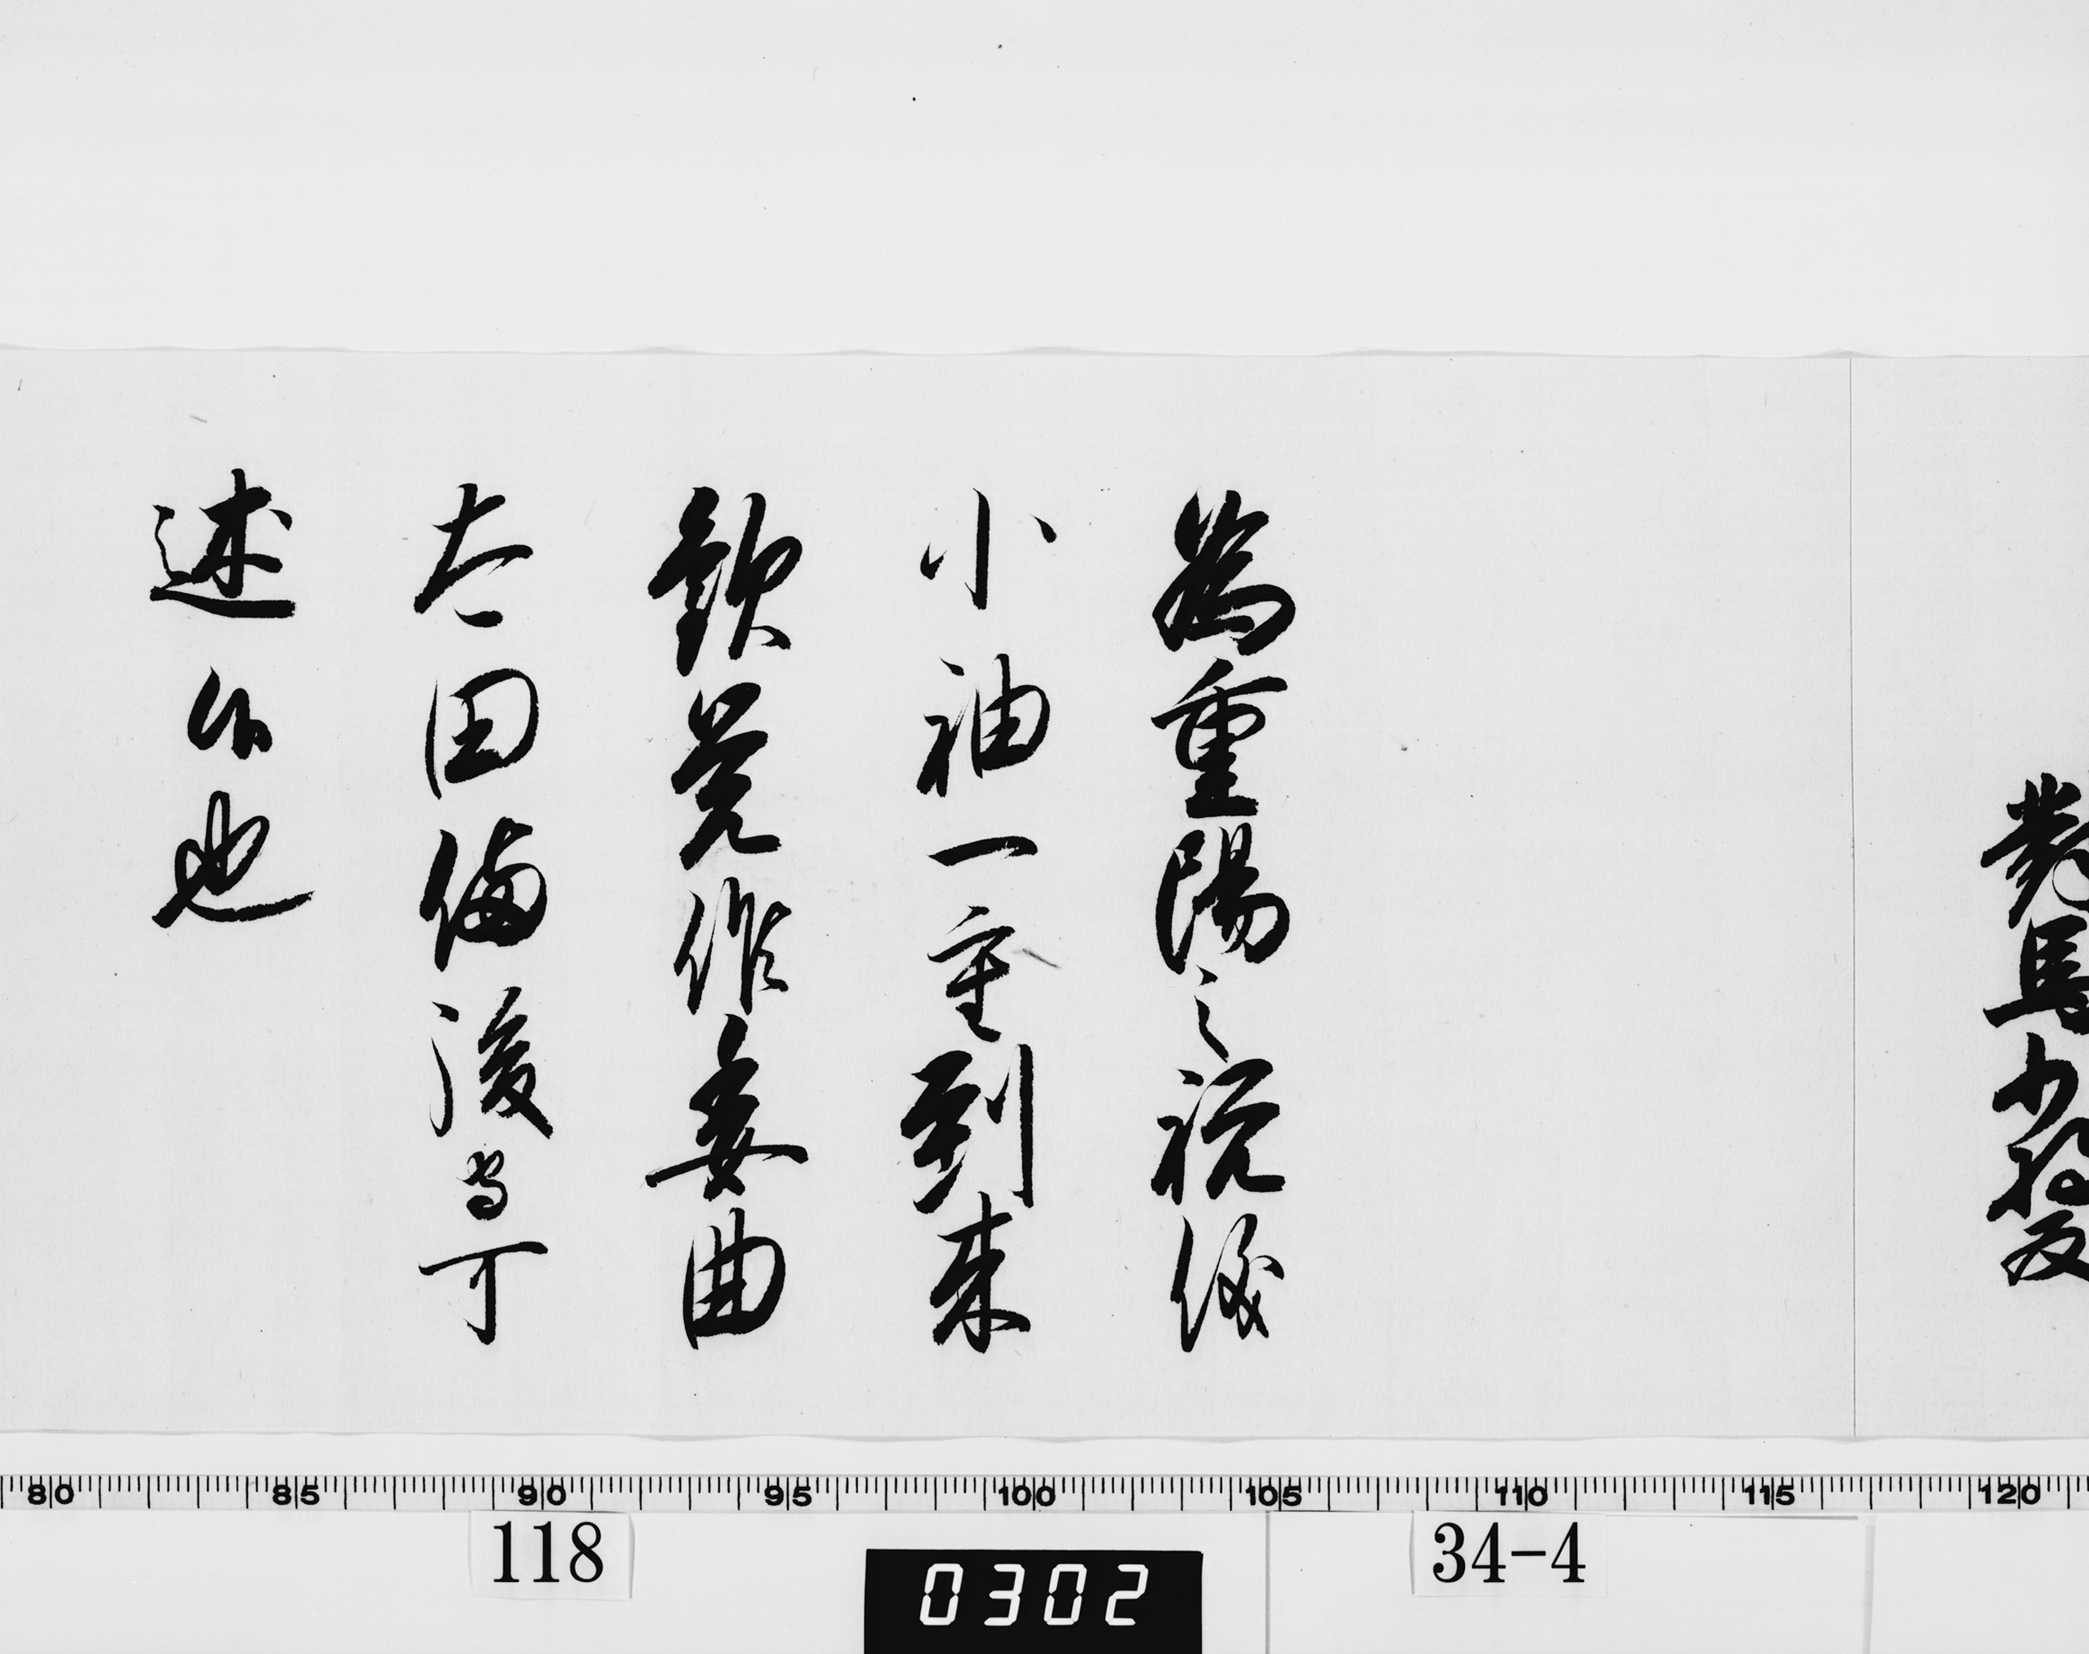 對馬少將殿
為重陽之祝儀
小袖一重到来
歓覚候委曲
太田備後守可
述候也
80 85 90 95 100 105 110 115 120
118
0302
34-4